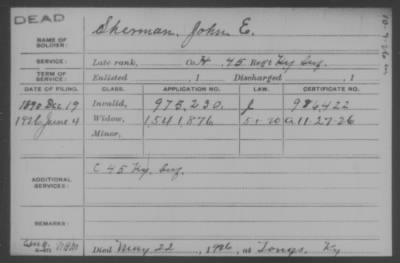 DEAD
NAME OF SOLDIER: Sherman, John E.
SERVICE: Late rank, Co. H, 45 Reg't Ky. Inf.
TERM OF SERVICE: Enlisted , 1 Discharged , 1
DATE OF FILING. CLASS. APPLICATION NO. LAW. CERTIFICATE NO.
1890 Dec 19 Invalid, 975,230 J 986,422
1926 June 4 Widow, 1541876 5-1-20 a 11-27-26
Minor,
ADDITIONAL SERVICES: C 45 Ky. Inf.
REMARKS:
Died May 22, 1926, at Tongs, Ky